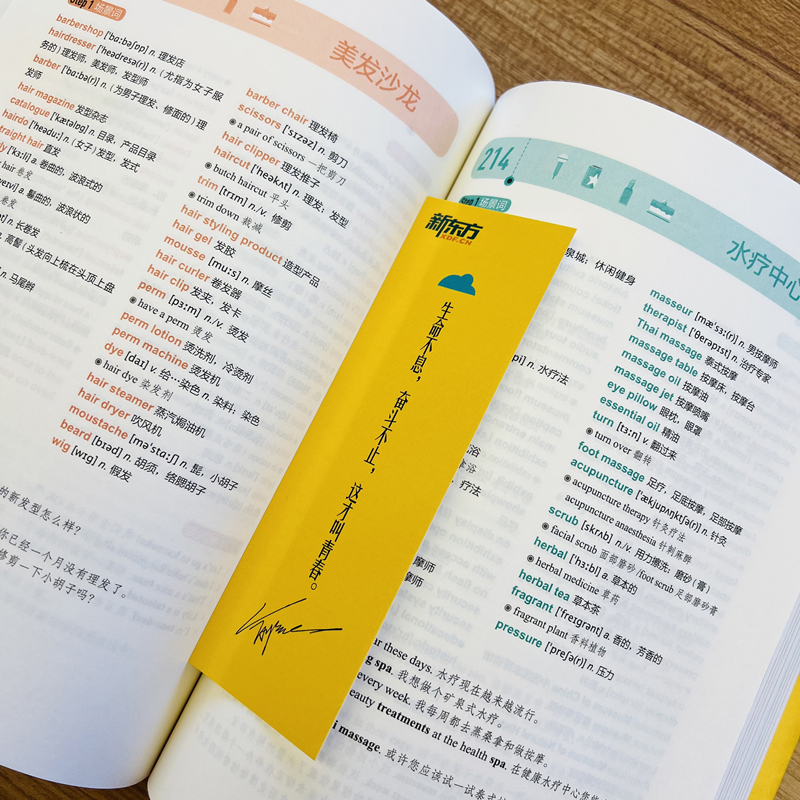 Step 1 场景词
美发沙龙
barbershop ['bɑːbəʃɒp] n. 理发店
hairdresser ['heədresə(r)] n. (尤指为女子服
务的) 理发师, 美发师, 发型师
barber ['bɑːbə(r)] n. (为男子理发、修面的) 理
发师
hair magazine 发型杂志
catalogue ['kætəlɒɡ] n. 目录, 产品目录
hairdo ['heəduː] n. (女子) 发型, 发式
traight hair 直发
['kɜːli] a. 卷曲的, 波浪式的
hair 卷发
a. 鬈曲的, 波浪状的
卷发
n. 长卷发
高髻 (头发向上梳在头顶上盘
n. 马尾辫
的新发型怎么样?
你已经一个月没有理发了。
修剪一下小胡子吗?
barber chair 理发椅
scissors ['sɪzəz] n. 剪刀
a pair of scissors 一把剪刀
hair clipper 理发推子
haircut ['heəkʌt] n. 理发; 发型
butch haircut 平头
trim [trɪm] n./v. 修剪
trim down 裁减
hair styling product 造型产品
hair gel 发胶
mousse [muːs] n. 摩丝
hair curler 卷发器
hair clip 发夹, 发卡
perm [pɜːm] n./v. 烫发
have a perm 烫发
perm lotion 烫洗剂, 冷烫剂
perm machine 烫发机
dye [daɪ] v. 给…染色 n. 染料, 染色
hair dye 染发剂
hair steamer 蒸汽焗油机
hair dryer 吹风机
moustache [mə'stɑːʃ] n. 髭, 小胡子
beard [bɪəd] n. 胡须, 络腮胡子
wig [wɪɡ] n. 假发
新东方
XDF.CN
生命不息,奋斗不止,这才叫青春。
214
水疗中心
Step 1 场景词
泉城; 休闲健身
n. 水疗法
浴
浴
, 疗法
摩师
摩师
masseur [mæ'sɜː(r)] n. 男按摩师
therapist ['θerəpɪst] n. 治疗专家
Thai massage 泰式按摩
massage table 按摩床, 按摩台
massage oil 按摩油
massage jet 按摩喷嘴
eye pillow 眼枕, 眼罩
essential oil 精油
turn [tɜːn] v. 翻过来
turn over 翻转
foot massage 足疗, 足底按摩, 足部按摩
acupuncture ['ækjupʌŋktʃə(r)] n. 针灸
acupuncture therapy 针灸疗法
acupuncture anaesthesia 针刺麻醉
scrub [skrʌb] n./v. 用力擦洗; 磨砂 (膏)
facial scrub 面部磨砂 /foot scrub 足部磨砂膏
herbal ['hɜːbl] a. 草本的
herbal medicine 草药
herbal tea 草本茶
fragrant ['freɪɡrənt] a. 香的, 芳香的
fragrant plant 香料植物
pressure ['preʃə(r)] n. 压力
ar these days. 水疗现在越来越流行。
g spa. 我想做个矿泉式水疗。
every week. 我每周都去蒸桑拿和做按摩。
eauty treatments at the health spa. 在健康水疗中心您
i massage, 或许您应该试一试泰式